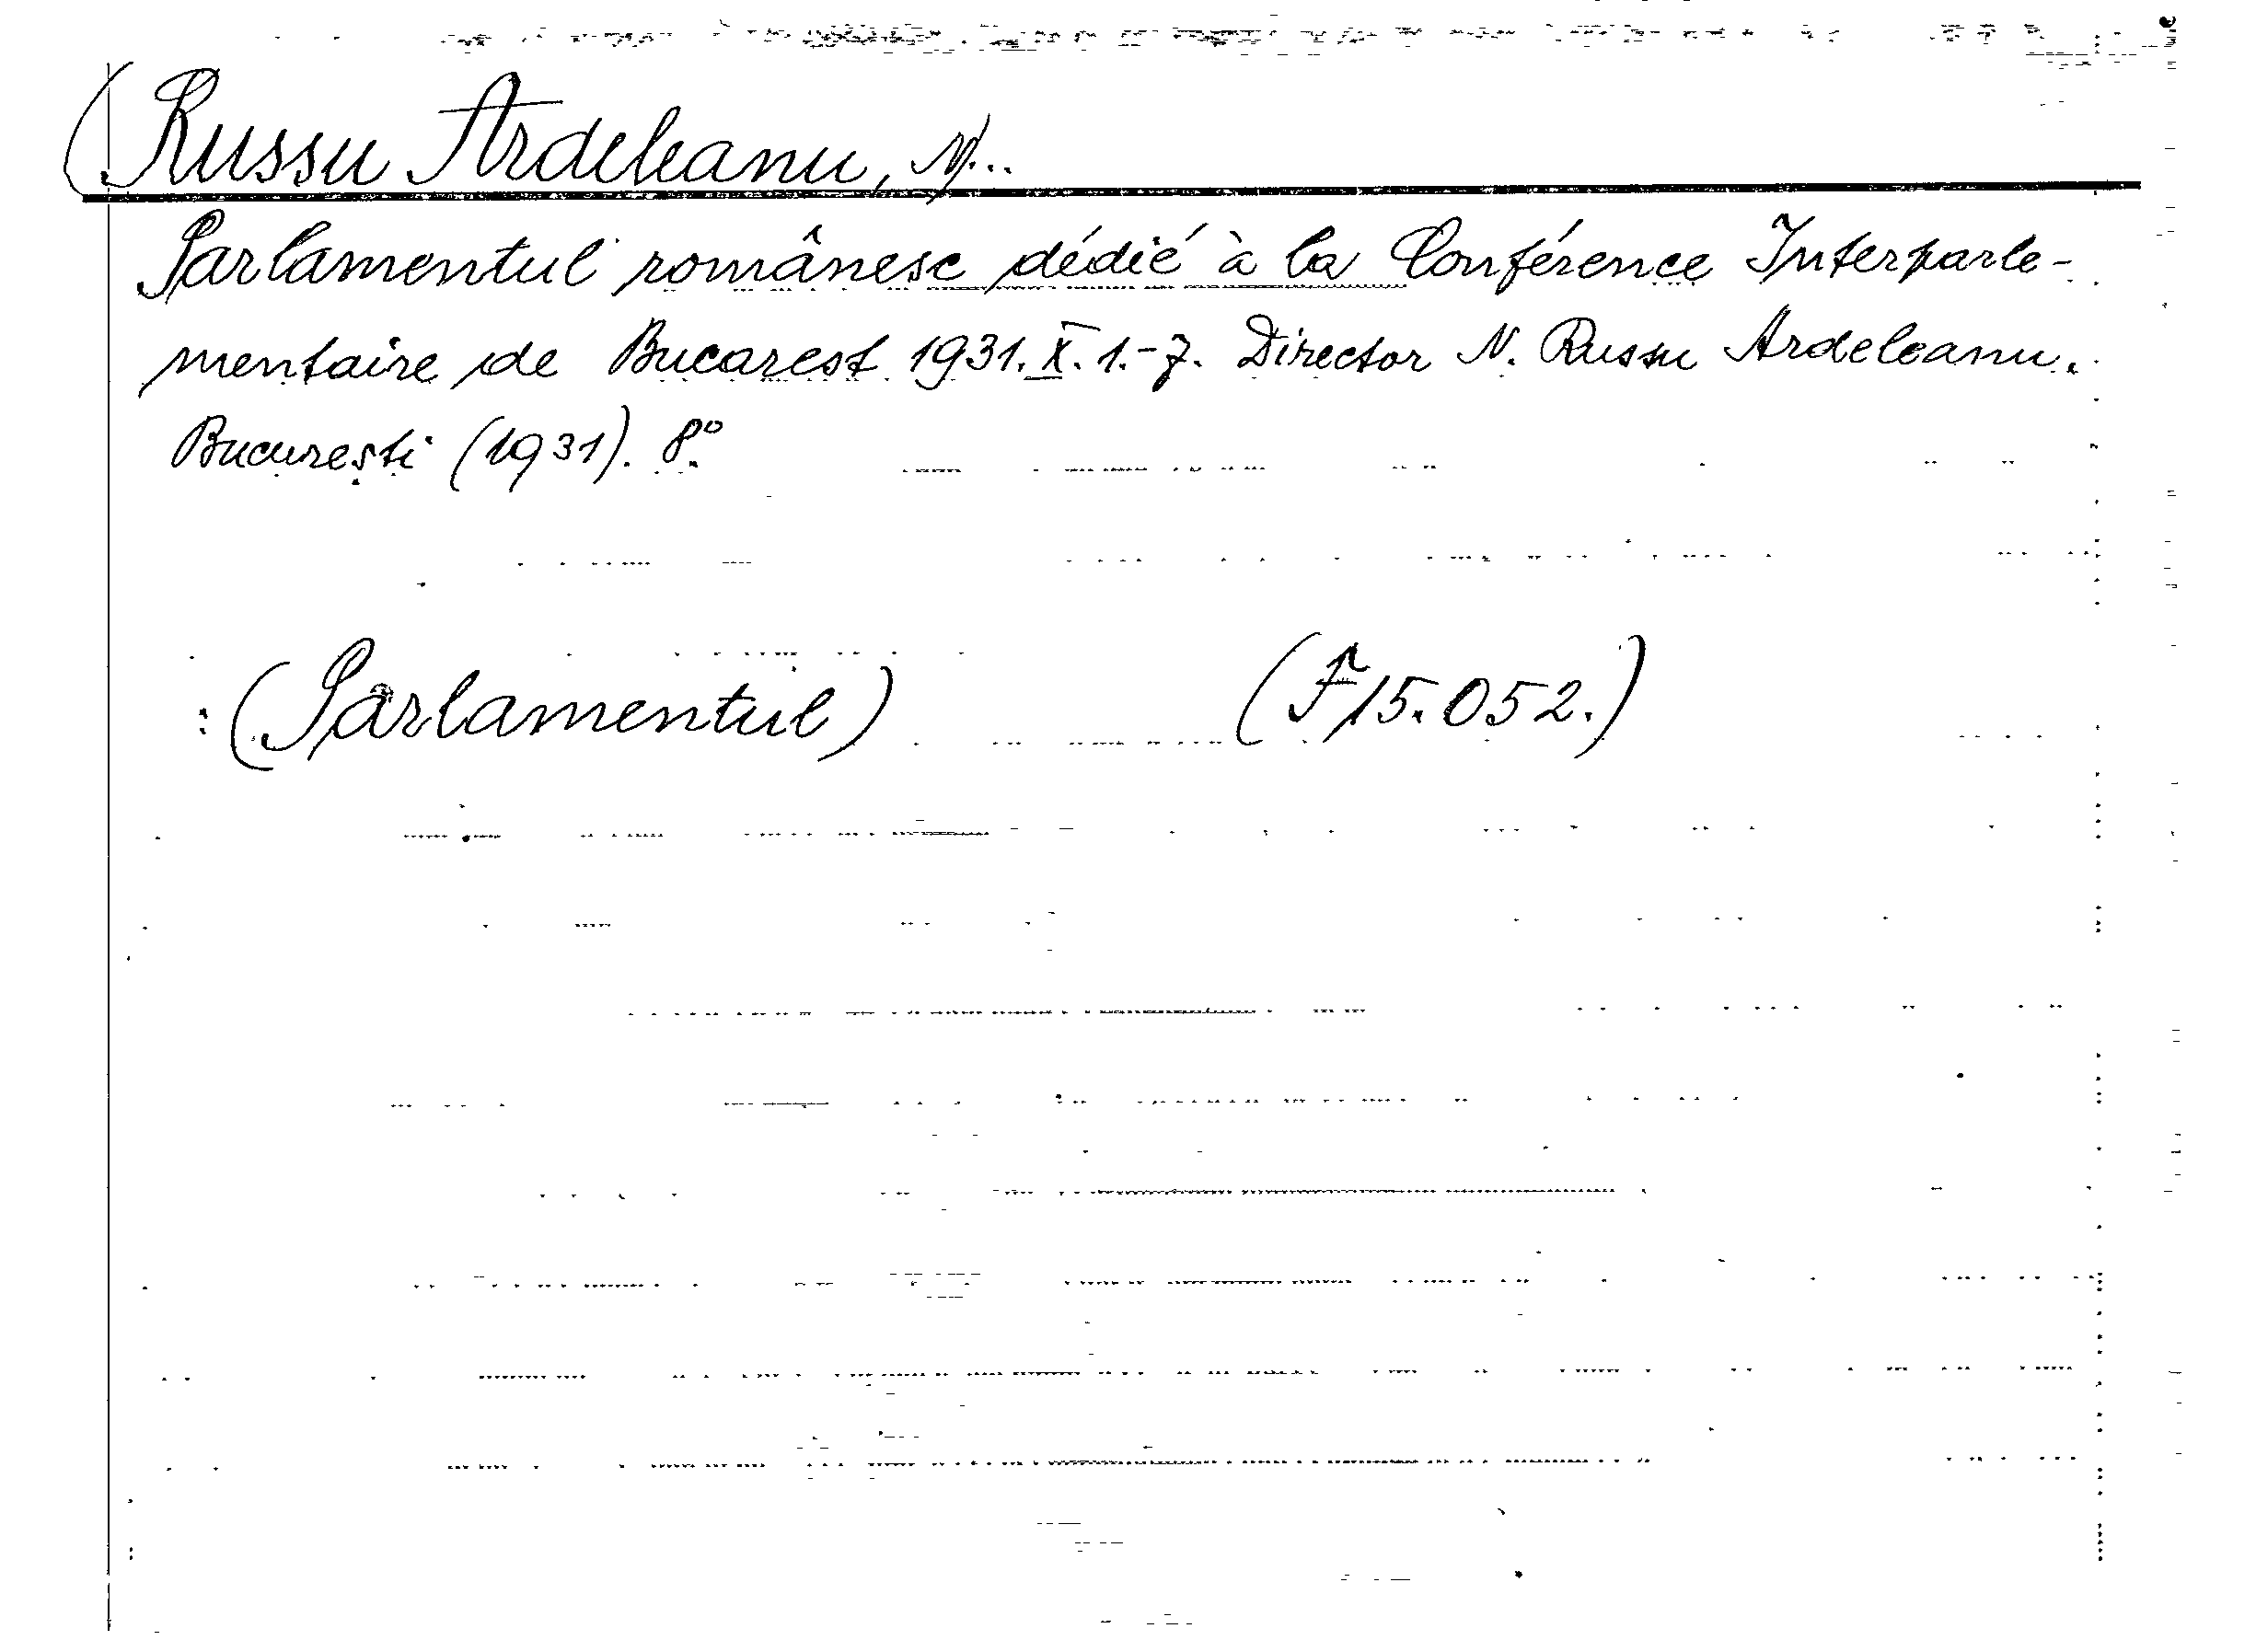 (Russu Ardeleanu, N)...
Parlamentul românesc dédié à la Conférence Interparle-
mentaire de Bucarest 1931. X. 1.-7. Director N. Russu Ardeleanu.
București (1931). 8°.
(Parlamentul) (F 15.052.)